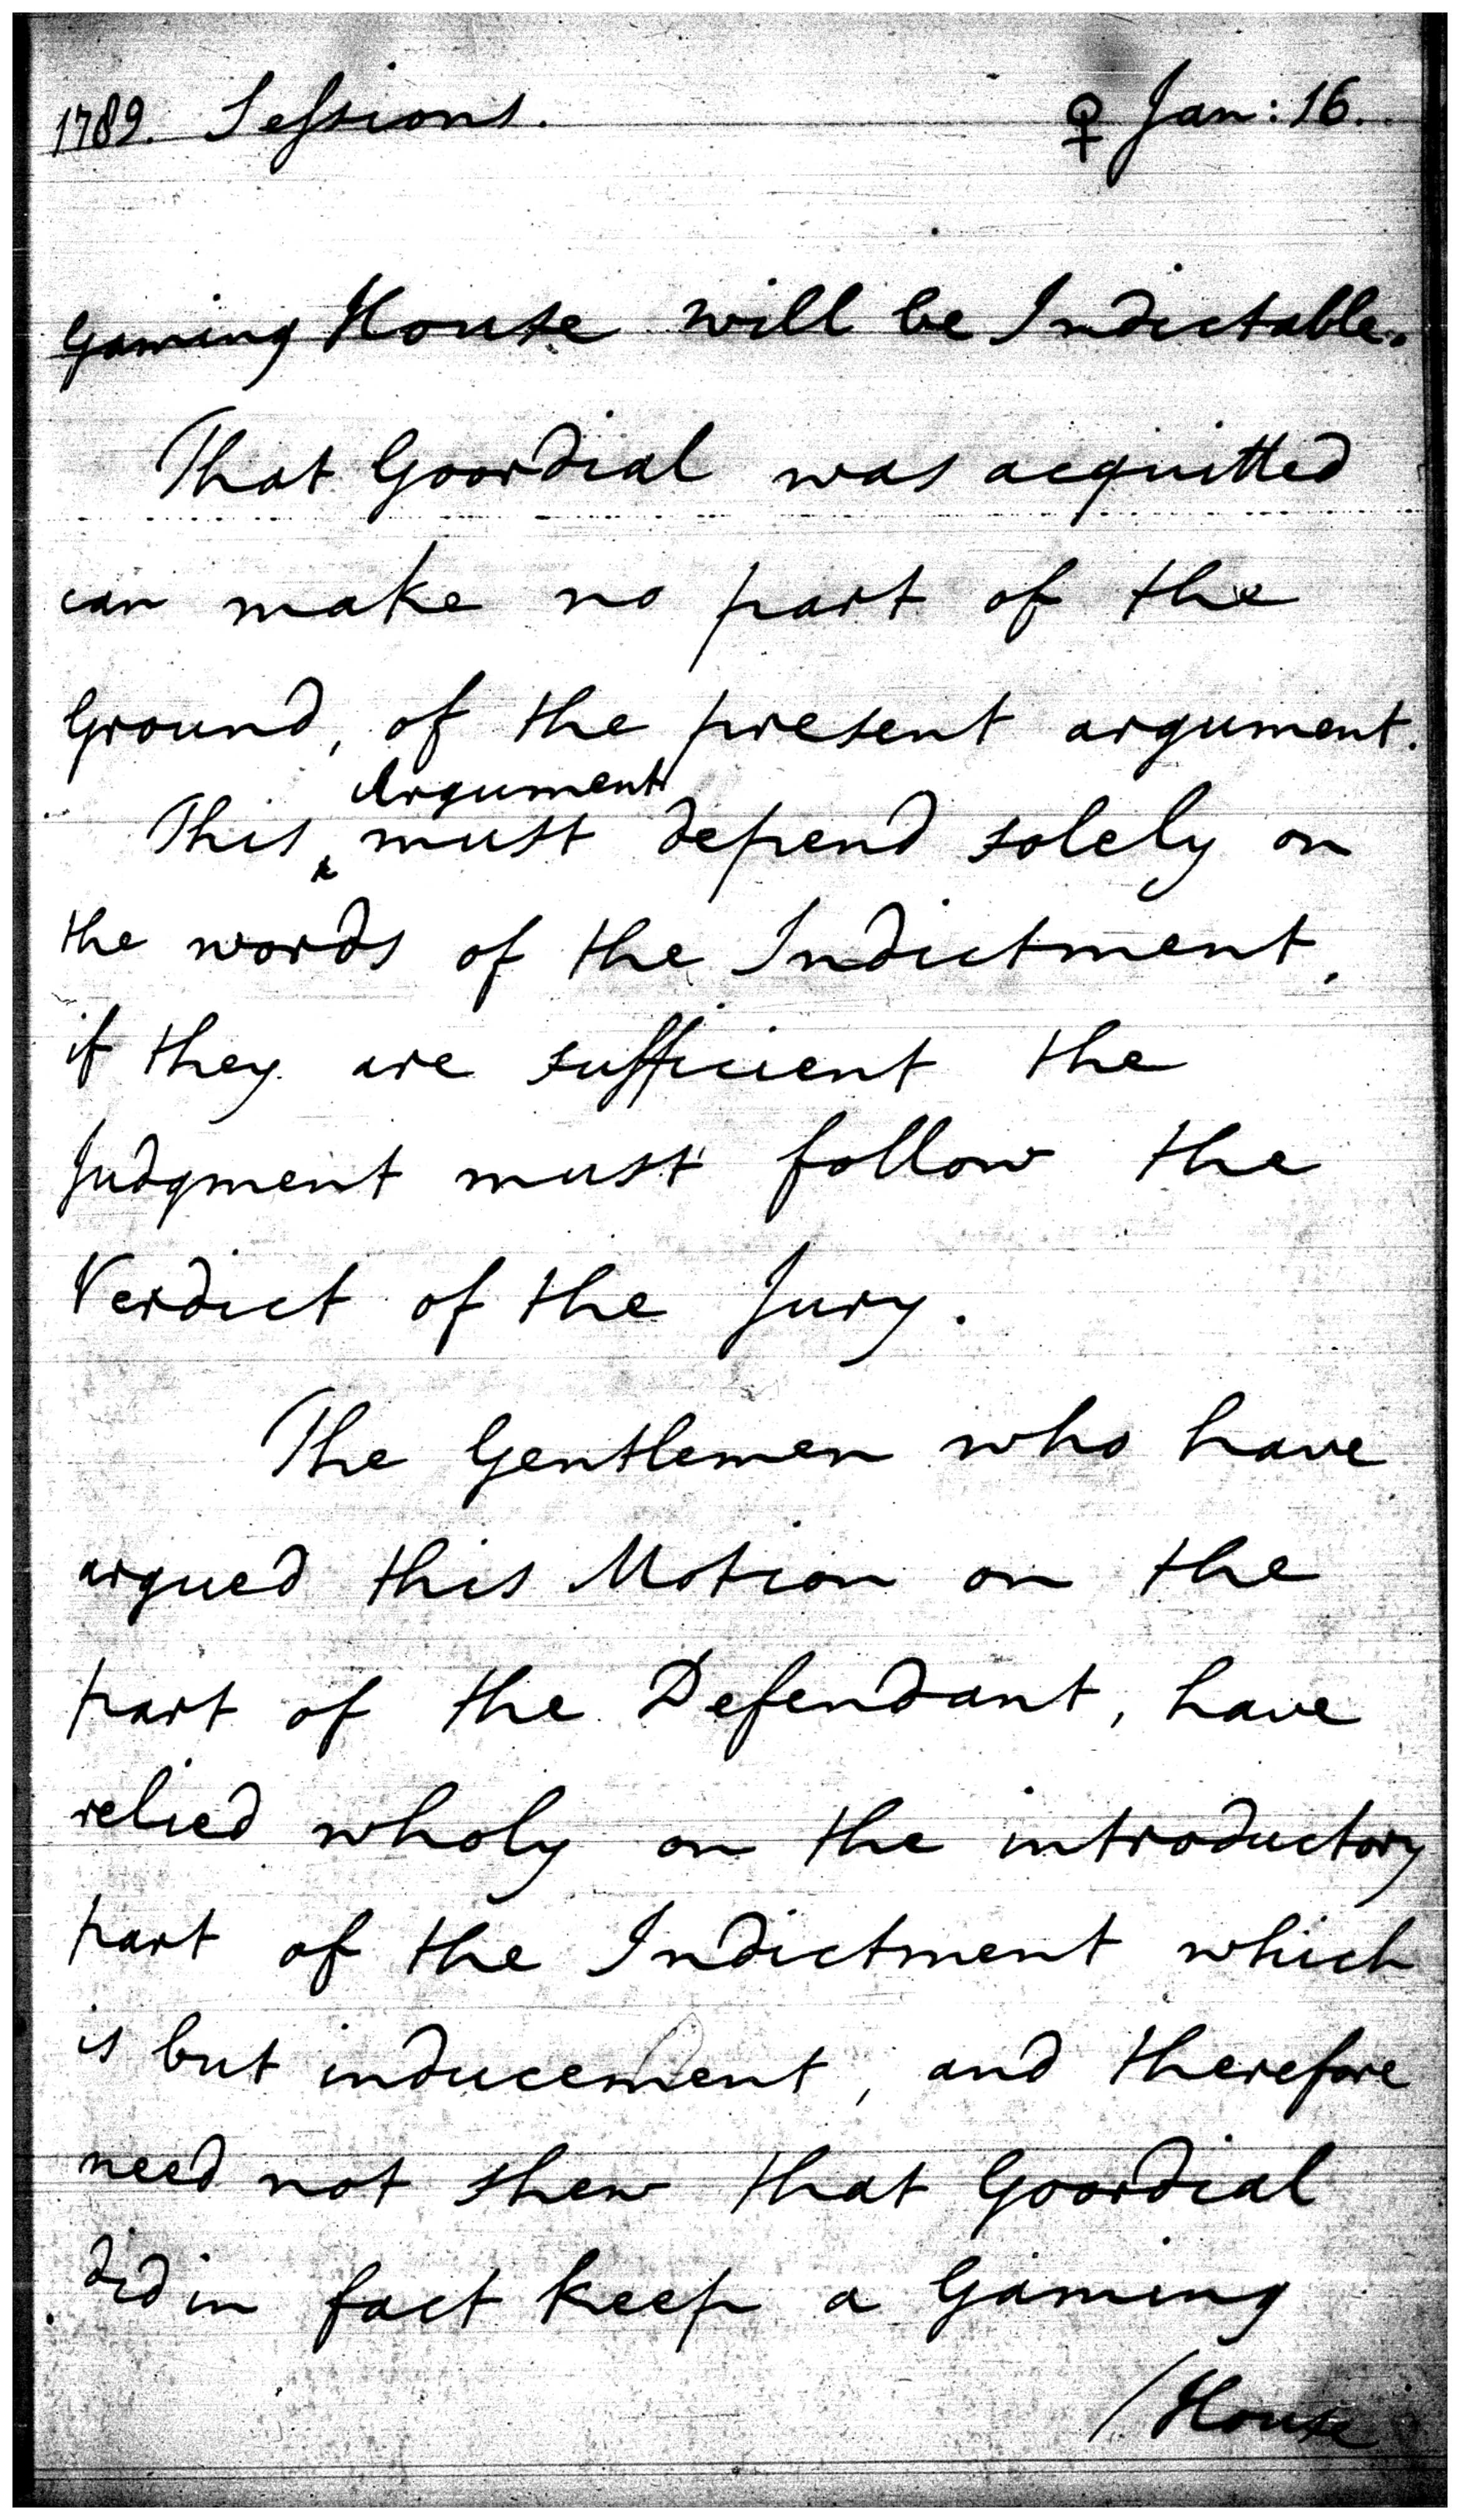 1789. Sessions. ♀ Jan: 16.
Gaming House will be Indictable.
That Goordial was acquitted
can make no part of the
Ground, of the present argument.
Argument
This ‸ must depend solely on
the words of the Indictment,
if they are sufficient the
Judgment must follow the
Verdict of the Jury.
The Gentlemen who have
argued this Motion on the
part of the Defendant, have
relied wholy on the introductory
part of the Indictment which
is but inducement, and therefore
need not shew that Goordial
did in fact keep a Gaming
/House